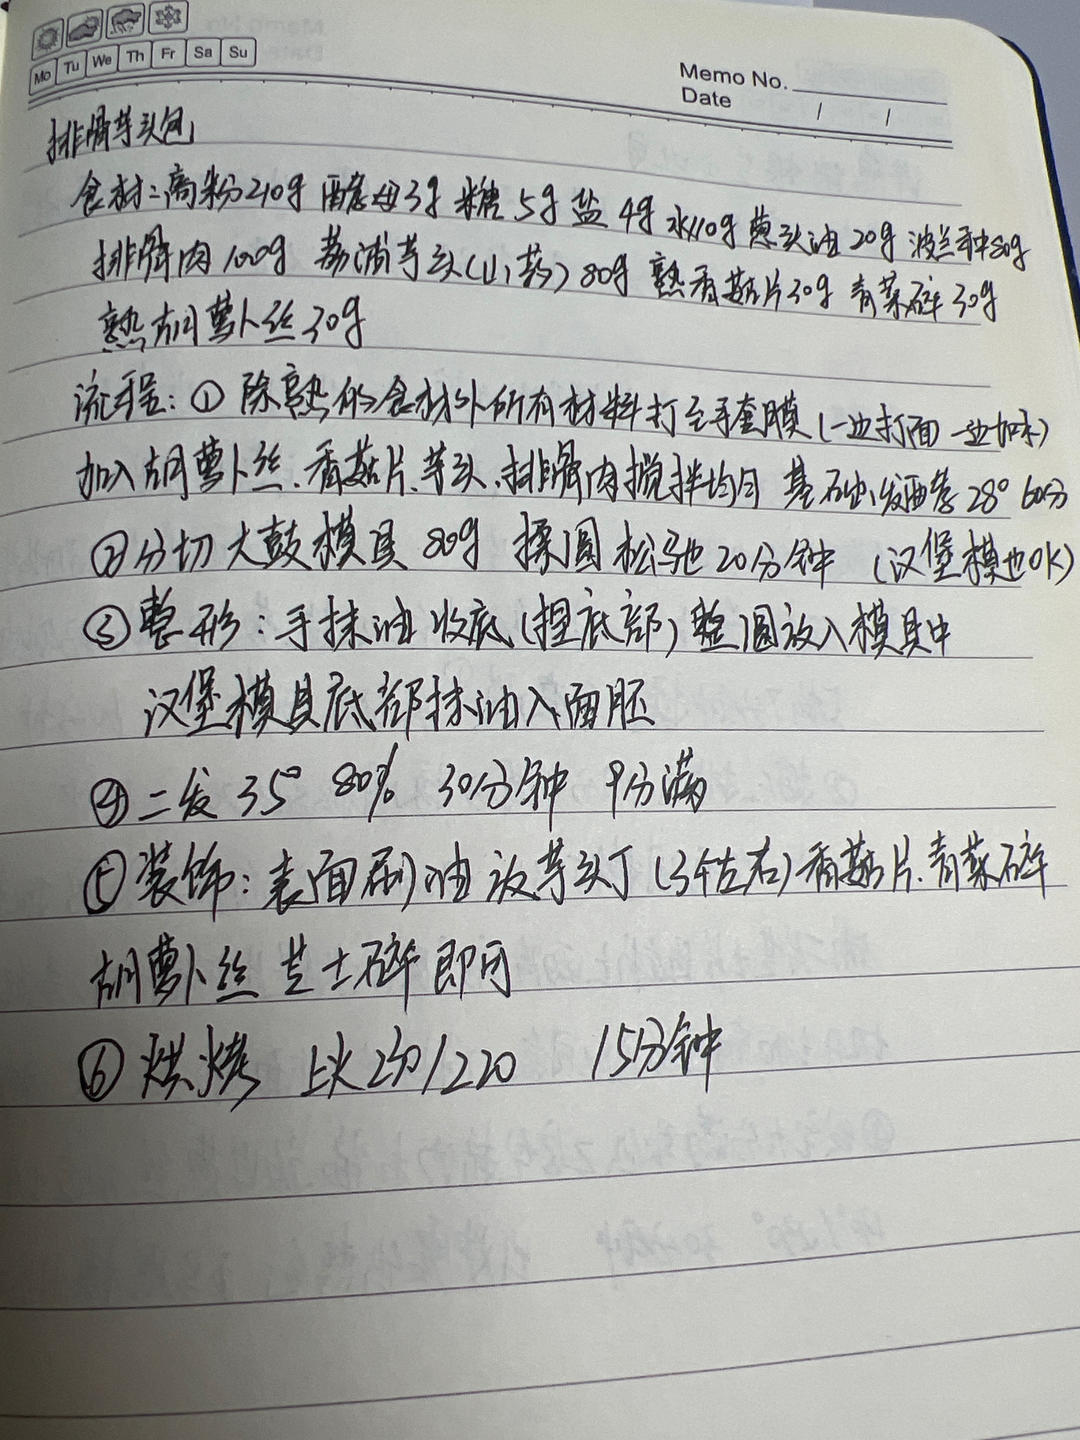 Mo Tu We Th Fr Sa Su
Memo No.
Date / /
排骨芋头包
食材：高粉210g 酵母3g 糖5g 盐4g 水110g 葱头油20g 波兰种80g
排骨肉100g 荔浦芋头(山药)80g 熟香菇片30g 青菜碎30g
熟胡萝卜丝30g
流程：① 除熟的食材外所有材料打至手套膜(一边打面 一边加水)
加入胡萝卜丝、香菇片、芋头、排骨肉搅拌均匀 基础发酵28° 60分
②分切大鼓模具 80g 揉圆松驰20分钟 (汉堡模也OK)
③整形：手抹油收底(捏底部)整圆放入模具中
汉堡模具底部抹油入面胚
④二发35° 80% 30分钟 9分满
⑤装饰：表面刷油放芋头丁(3个左右)香菇片.青菜碎
胡萝卜丝 芝士碎即可
⑥烘烤 上火 /220 15分钟